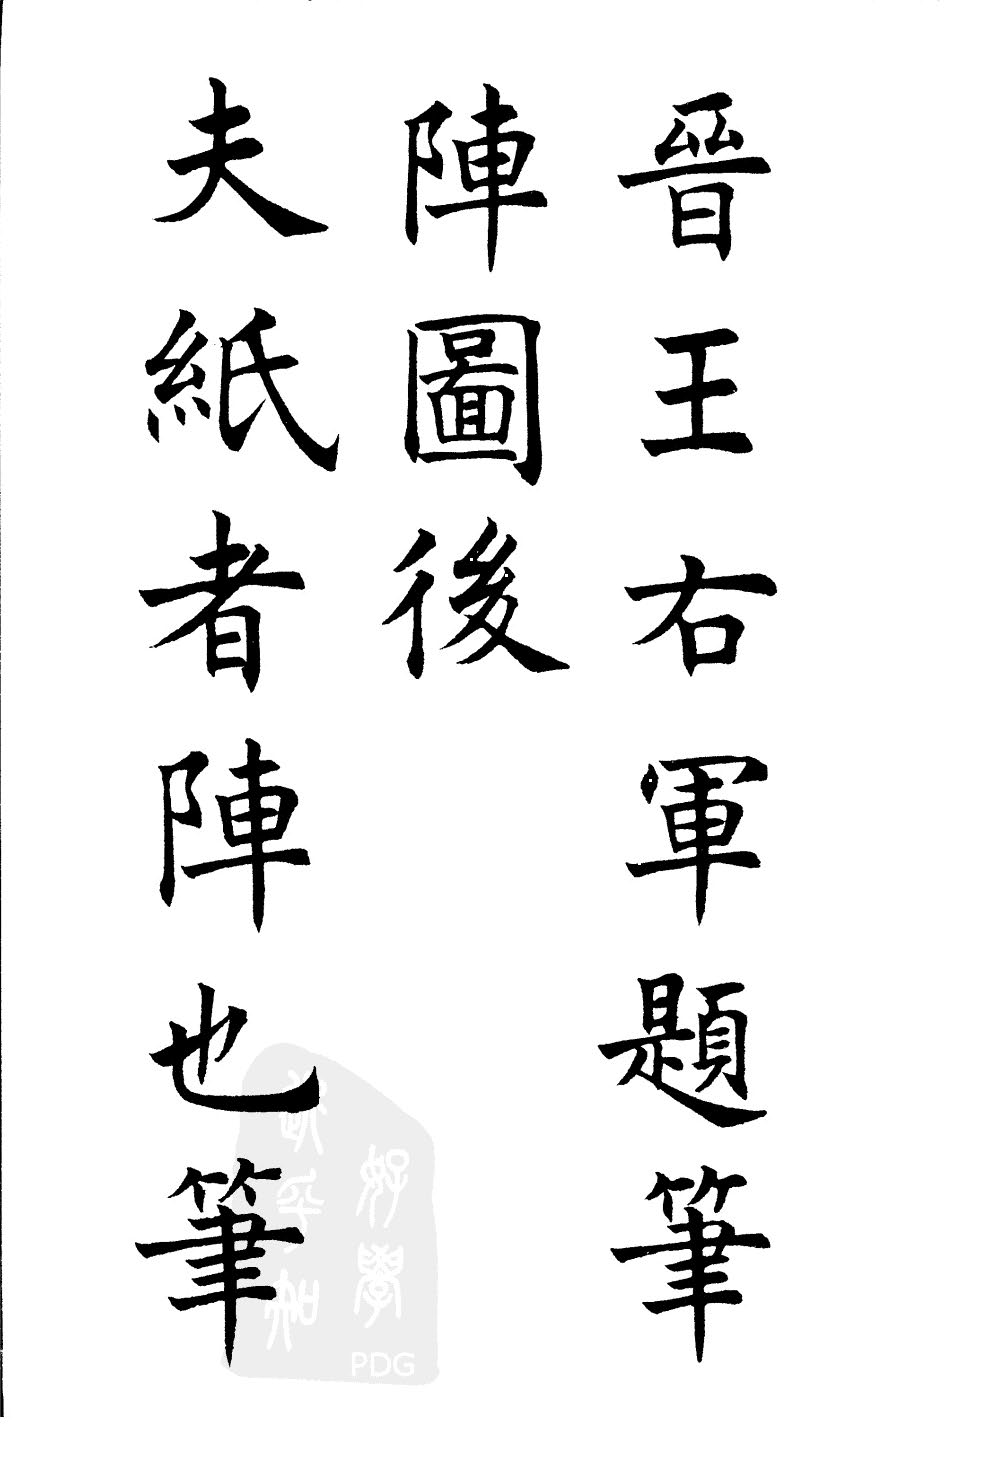 晉王右軍題筆
陣圖後
夫紙者陣也筆
好學
PDG